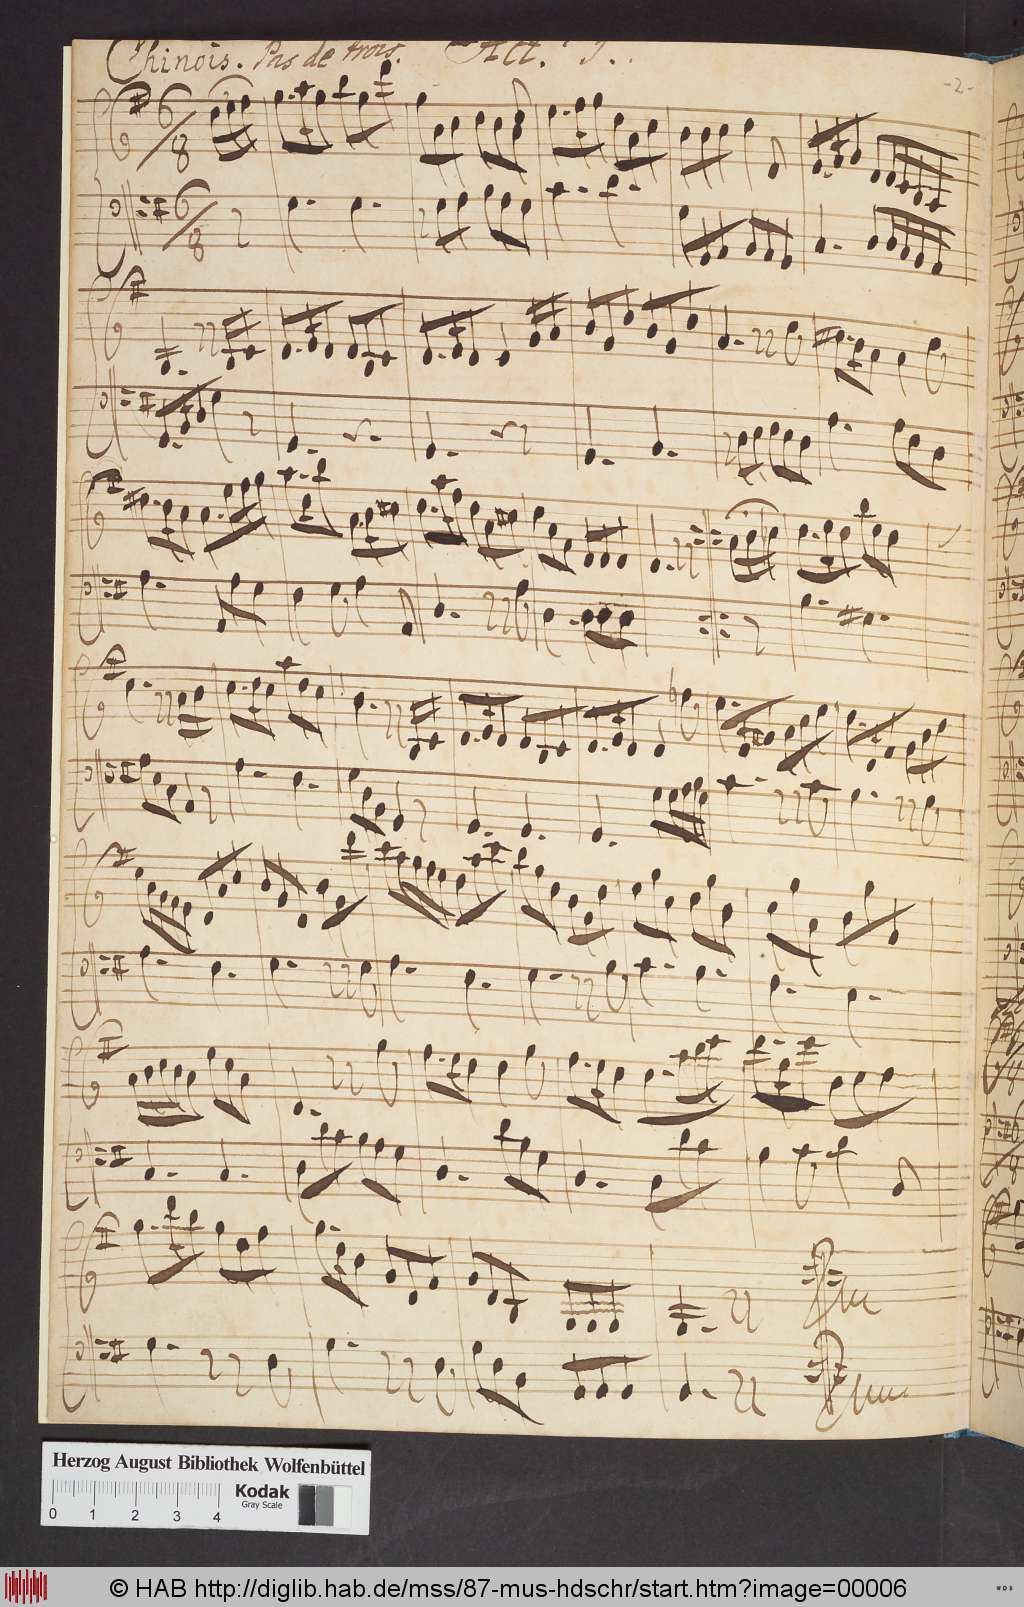 Chinois. Pas de trois. Act. I.
-2-
6/8
6/8
Herzog August Bibliothek Wolfenbüttel
Kodak
Gray Scale
0 1 2 3 4
© HAB http://diglib.hab.de/mss/87-mus-hdschr/start.htm?image=00006
WDB